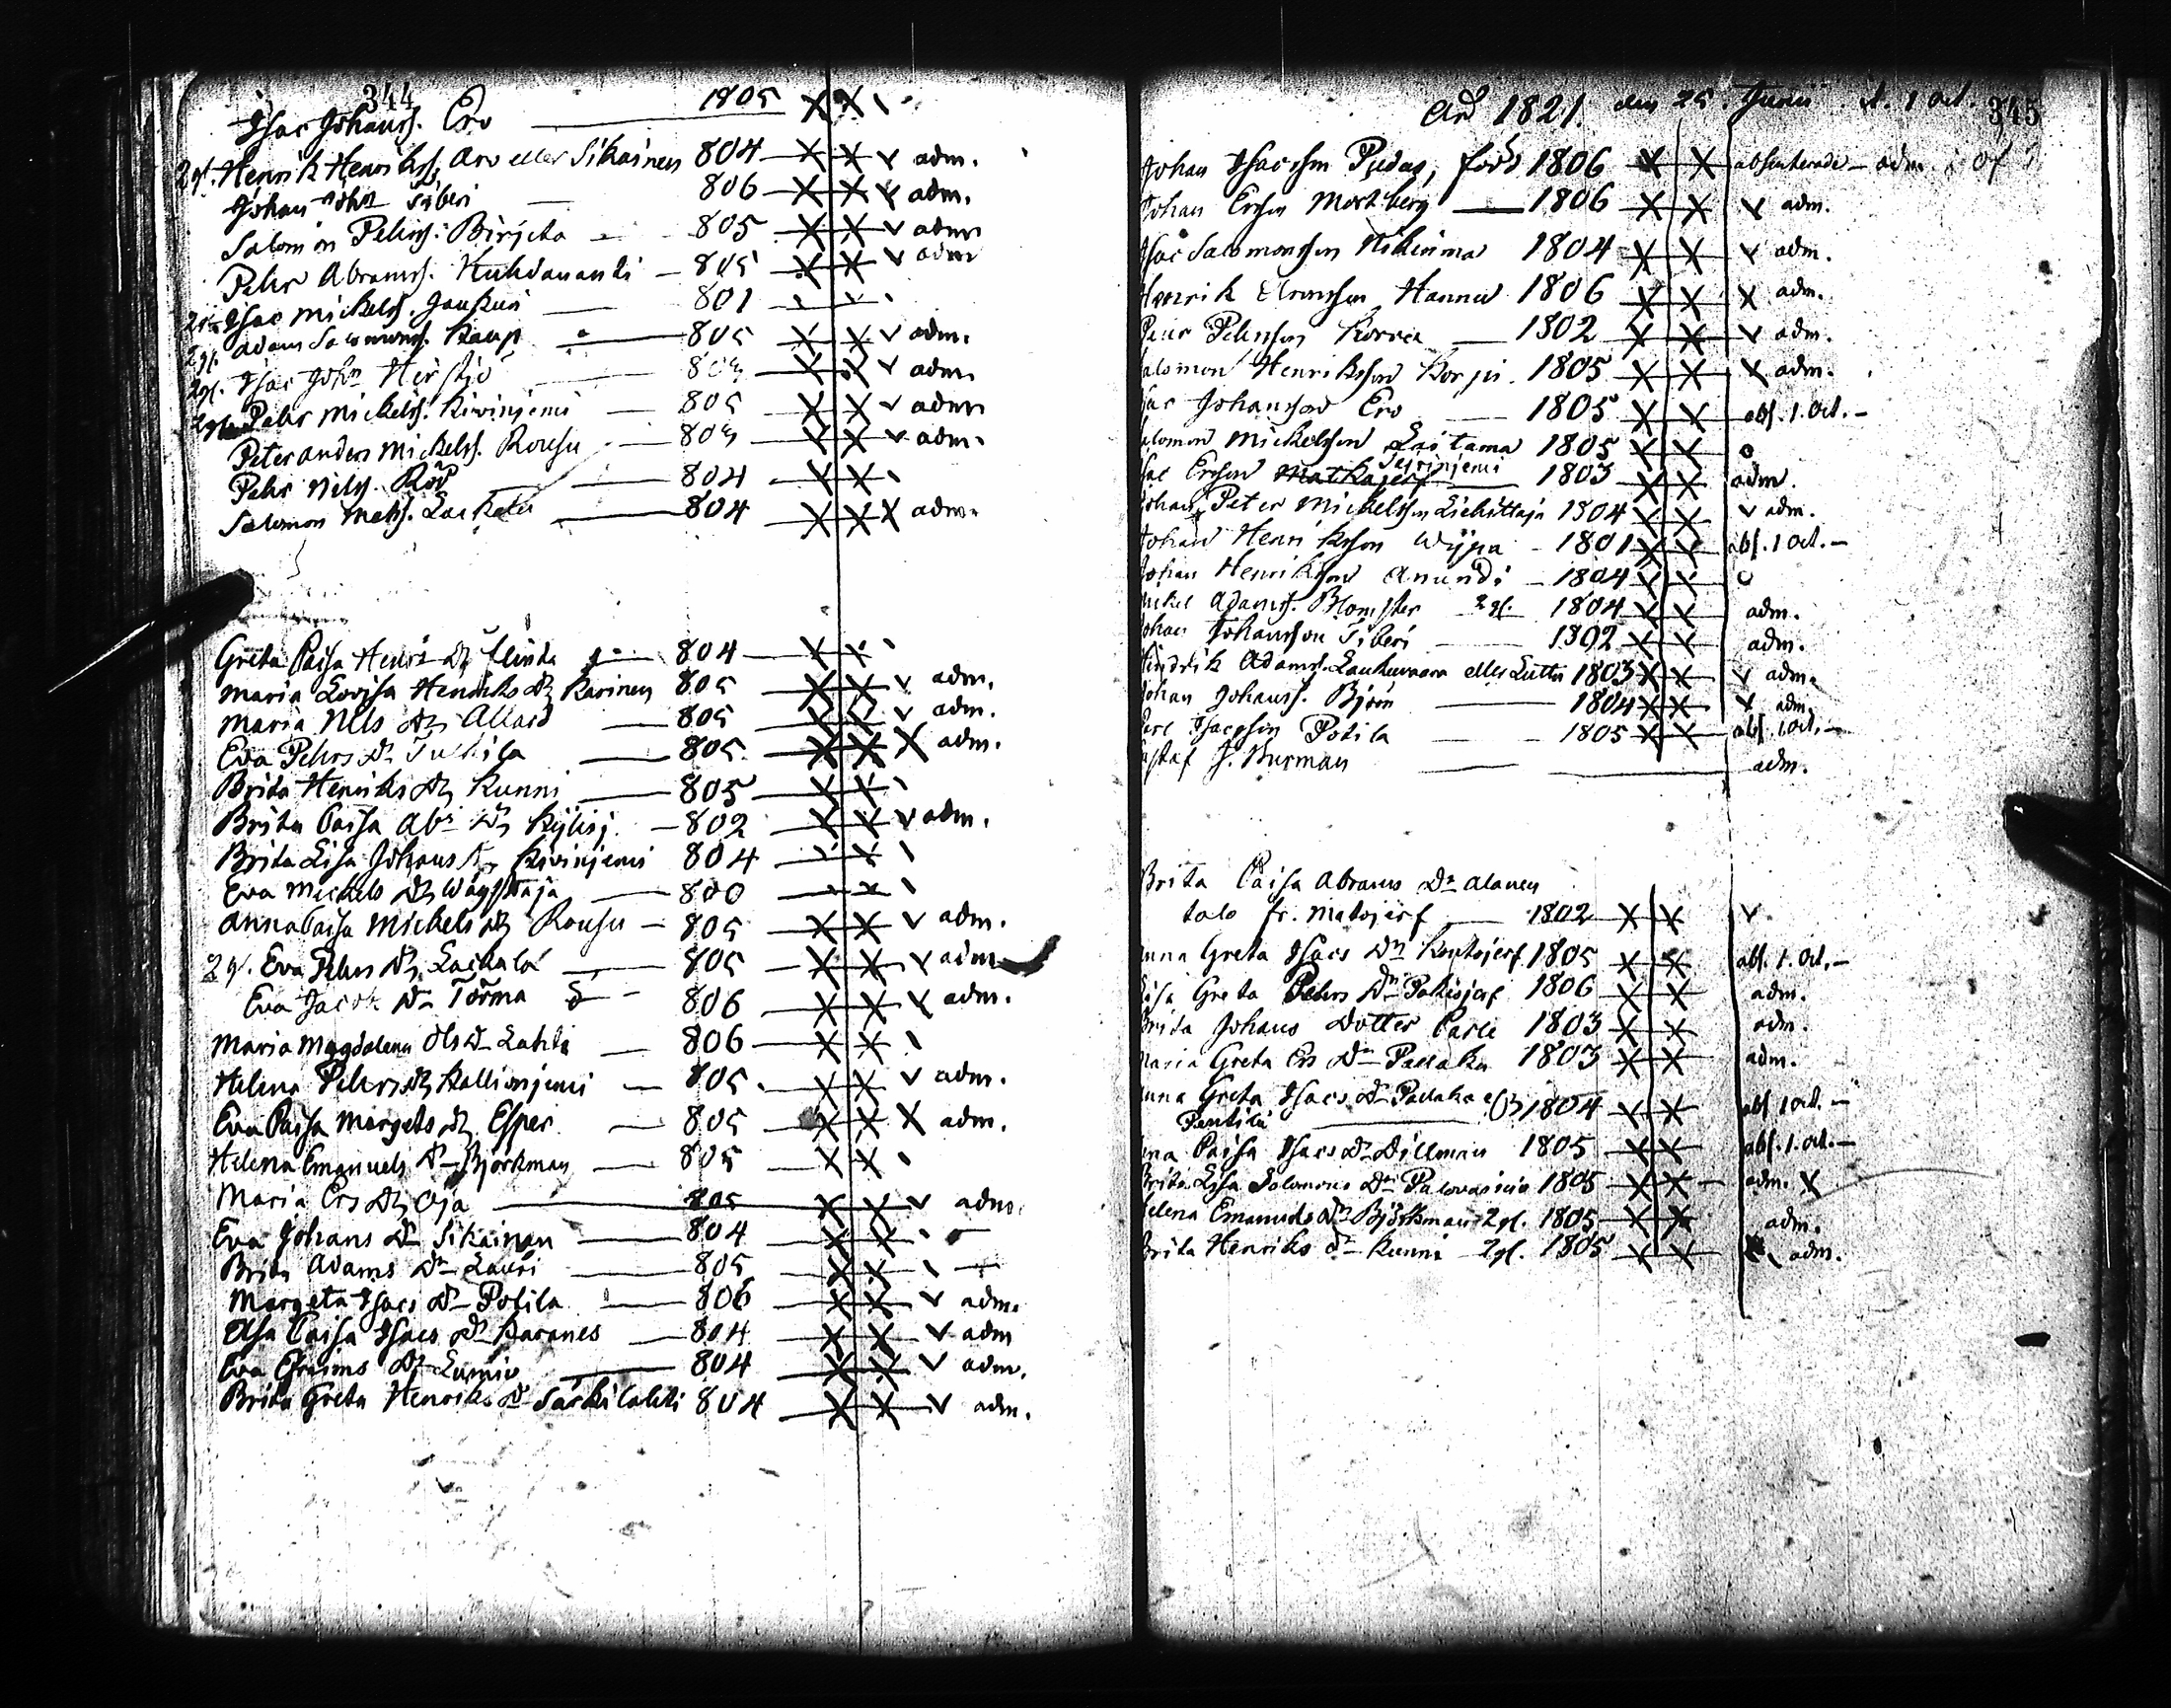 344
Isac Johanss. Ero 1805 X X
2 gl. Henrik Henrikss. Aro eller Sikainen 804 X X v adm.
Johan Johns Siberi 806 X X v adm.
Salomon Pehrss. Birjita 805 X X v adm
Pehr Abramss. 805 X X v adm
Isac Mickelss. Jauhuri 801
2 gl. Adam Salomonss. Kaup 805 X X v adm.
2 gl. Isac Johns 803 X X v adm.
2 gl. Pehr Mickelss. Kivinjemi 805 X X v adm
Peter Anders Mickelss. Rousu 803 X X v adm.
Pehr Nilss. Röö 804 X X
Salomon Matss. 804 X X X adm.
Greta Caisa Henrs dr 804 X X
Maria Lovisa Henriks dr Karinen 805 X X v adm.
Maria Nils dr Allard 805 X X v adm.
Eva Pehrs dr Tulkila 805 X X X adm.
Brita Henriks dr Kunni 805 X X
Brita Caisa Abr. dr Kylisj. 802 X X v adm.
Brita Lisa Johans dr Kivinjemi 804
Eva Mickels dr 800
Anna Caisa Mickels dr Rousu 805 X X v adm.
2 gl. Eva Pehrs dr Laehala 805 X X v adm
Eva Jacobs dr Törmä 806 X X v adm.
Maria Magdalena Ols dr Lahti 806 X X
Helena Pehrs dr Kallionjemi 805. X X v adm.
Eva Caisa Margets dr Esper 805 X X X adm.
Helena Emanuels dr Björkman 805 X X
Maria Ers dr Oja 805 X X v adm.
Eva Johans dr Sikainen 804 X X
Brita Adams dr Lauri 805 X X
Margeta Isacs dr Potila 806 X X v adm.
Elsa Caisa Isacs dr Karanes 804 X X v adm
Eva Efraims dr Lumio 804 X X v adm.
Brita Greta Henriks dr Särkilahti 804 X X v adm.
År 1821. den 25. Junii d. 1 Oct. 345
Johan Isacsson Pudas, född 1806 X X absenterade – adm.
Johan Ersson Mortberg 1806 X X v adm.
Isac Salomonsson Niskinmaa 1804 X X v adm.
Henrik Hannu 1806 X X X adm.
Pehrsson Korva 1802 X X v adm.
Salomon Henriksson Korpi 1805 X X X adm.
Isac Johansson Ero 1805 X X abs. 1. Oct. –
Salomon Mickelsson Laitama 1805 X X o
Isac Ersson 1803 X X adm.
Johan Peter Mickelsson Liehittäjä 1804 X X v adm.
Johan Henriksson Wyya 1801 X X abs. 1 Oct. –
Johan Henriksson Anundi 1804 X X o
Mickel Adamss. Blomster 2 gl. 1804 X X adm.
Johan Johansson Siberi 1802 X X adm.
Hindrik Adamss. Laukuvaara eller Lutti 1803 X X v adm.
Johan Johanss. Björn 1804 X X v adm.
Carl Isacsson Potila 1805 X X abs. 1 Oct. –
Gustaf J. Burman adm.
Brita Caisa Abrams dr Alanen
talo fr. Matojärf 1802 X X v
Anna Greta Isacs dr Kontojerf 1805 X X abs. 1. Oct. –
Lisa Greta Pehrs dr Pakisjerf 1806 X X adm.
Brita Johans Dotter Carle 1803 X X adm.
Maria Greta Ers dr Pallaka 1803 X X adm.
Anna Greta Isacs dr Pallaka
Pentili 1804 X X abs. 1 Oct. –
Caisa Isacs dr Dillman 1805 X X abs. 1. Oct. –
Brita Lisa Salomons dr Palovainio 1805 X X adm. X
Helena Emanuels dr Björkman 2 gl. 1805 X X adm.
Brita Henriks dr Kunni 2 gl. 1805 X X adm.